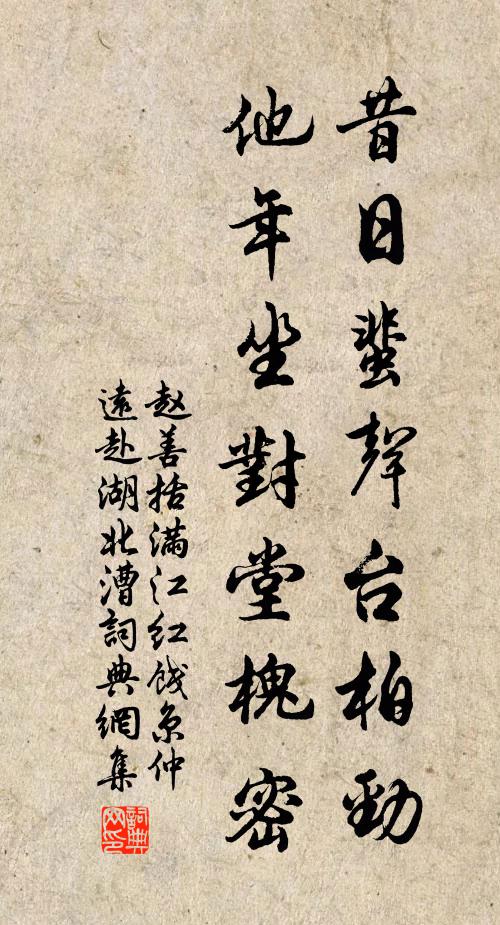 昔日蜚聲台柏勁
他年坐對堂槐密
赵善括滿江红餞京仲
遠赴湖北漕詞典網集
詞典
网印